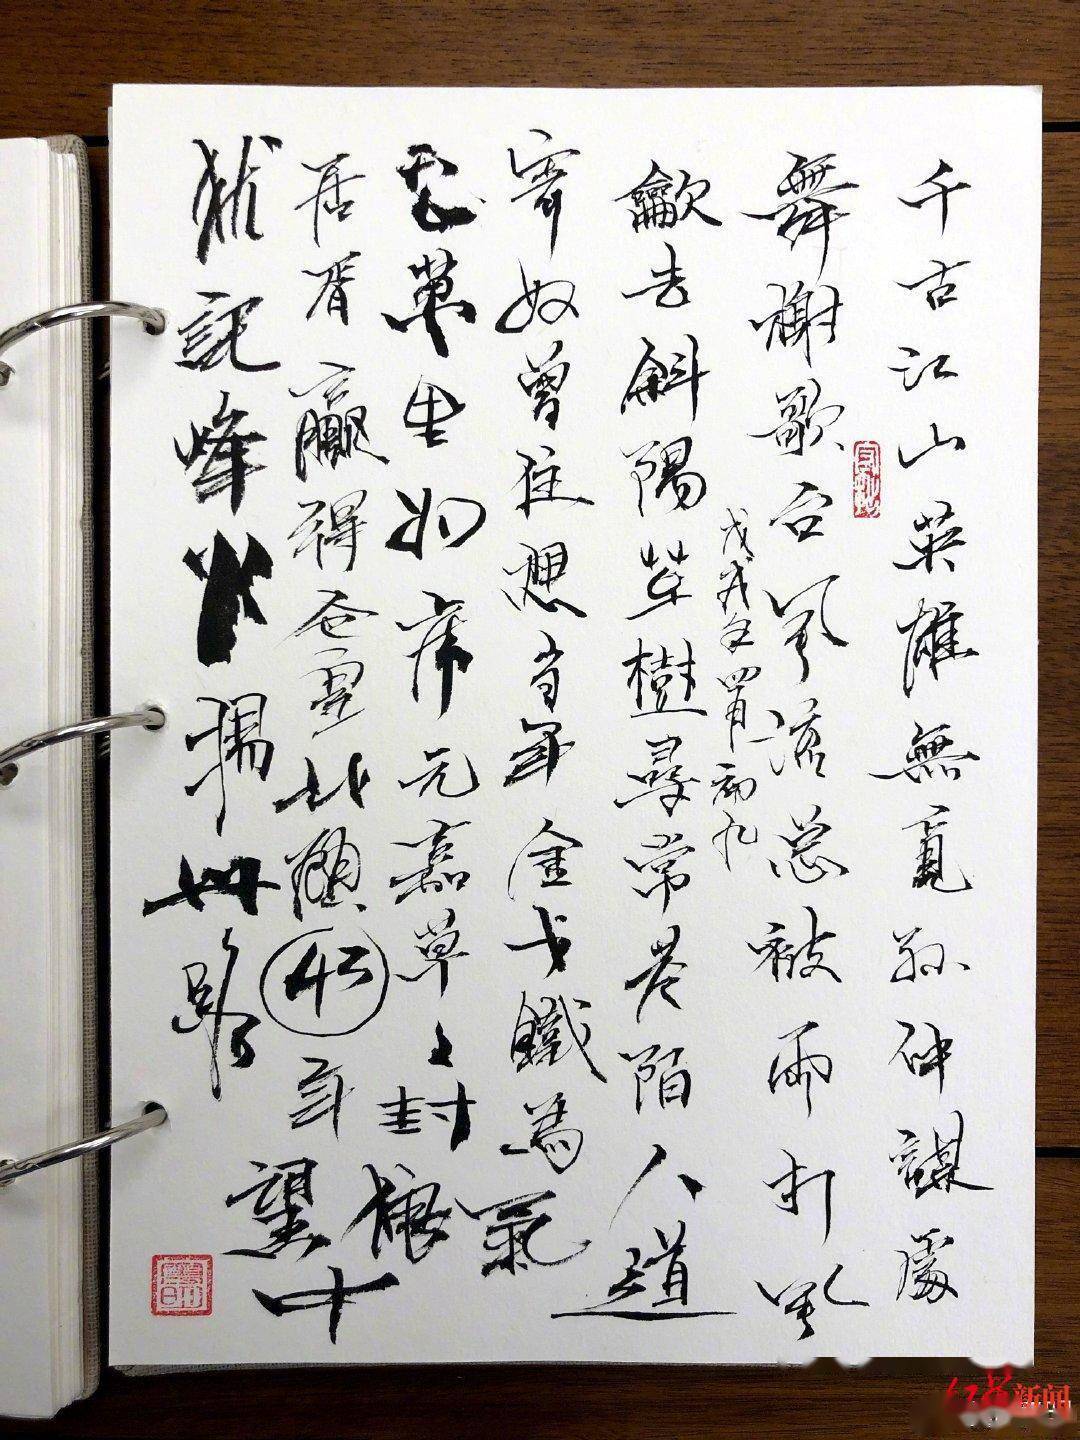 千古江山英雄無覓孫仲謀處
舞榭歌台風流总被雨打風
戊戌年四月初九
龡去斜陽草樹尋常巷陌人道
寄奴曾住想当年金戈鐵馬氣
吞萬里如虎元嘉草々封狼
居胥贏得仓皇北顧43年望中
猶記烽火揚州路
红星新闻